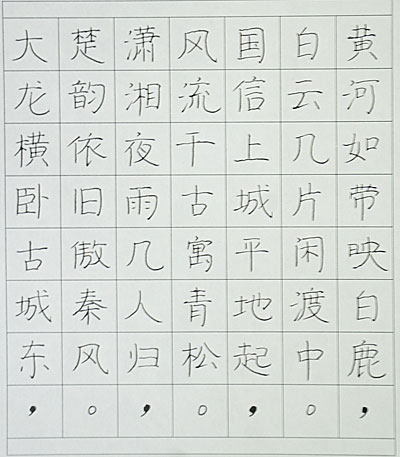 大龙横卧古城东，
楚韵依旧傲秦风。
潇湘夜雨几人归，
风流千古寓青松。
国信上城平地起，
白云几片闲渡中。
黄河如带映白鹿，